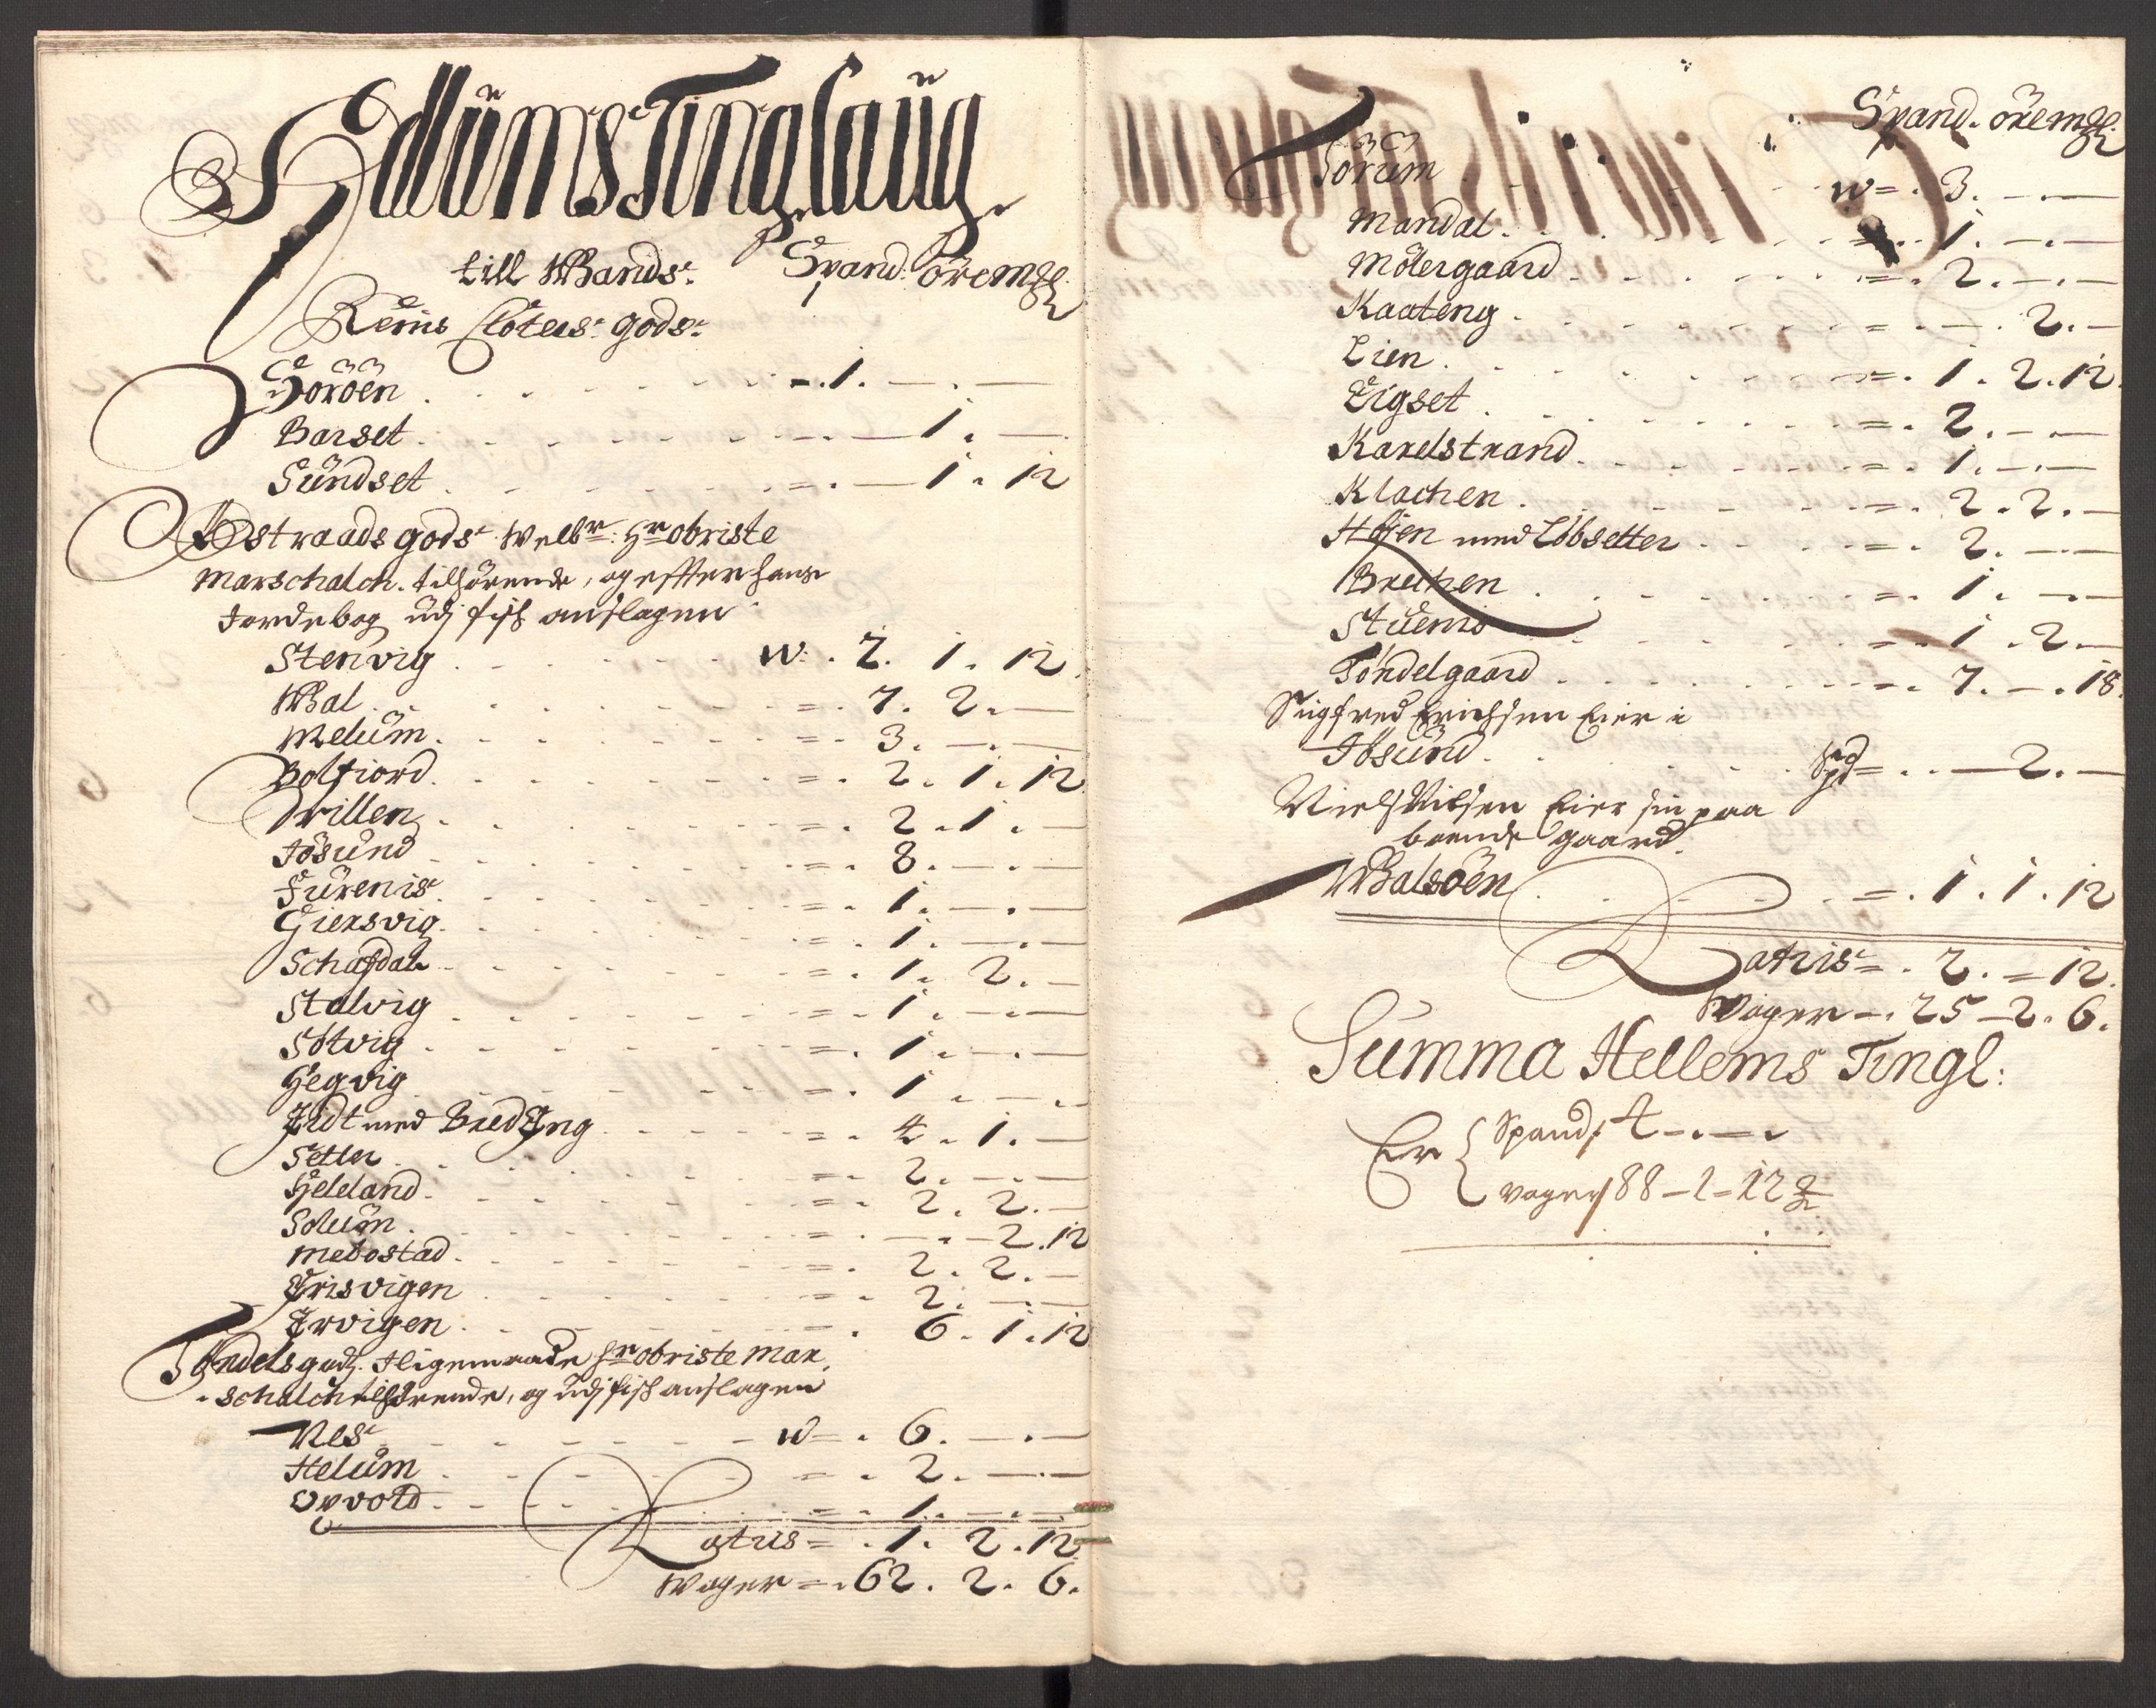 Hellums Tinglaug
till Wands. Spand. öre mℓ
Reins Closters gods.
Soröen . . . =. 1. — . —
Barset . . . — 1 . —
Sündset . . . =. — 1 . 12
Østraads gods. Welbr: Hr obriste
Marschalch. tilhörende, og effter hans
Jordebog udj fisk anslagen
Stenvig . . . w. . 2. 1. 12
Wal . . . = . 7. 2. —
Melüm . . . = . 3. — . —
Botfiord . . . = . 2. 1. 12
Drillen . . . = . 2. 1. —
Jösünd . . . = . 8. — . —
Fürenis . . . = . 1. — . —
Giersvig . . . = . 1. — . —
Schafdal . . . = . 1. 2. —
Stalvig . . . = . 1. — . —
Sötvig . . . = . 1. — . —
Hegvig . . . 1. — . —
Fidt med Bredeng . . . = . 4. 1. —
Setter . . . = . 2. — . —
Heleland . . . = 2. 2. —
Solum . . . = . — . 2. 12
Mebostad . . . = . 2. 2. —
Frisvigen . . . = . 2. — . —
Ervigen . . . = . 6. 1. 12
Tøndels godz. Hr obriste Mar-
schalch tilhörende, og udj fisk anslagen
Nes . . . w = . 6. — . —
Helüm . . . = . 2. — . —
Opvold . . . = . 1. — . —
Latus = . 1. 2. 12
Woger = . 62. 2. 6.
Spand. öre mℓ
Sorüm . . . w = . 3. — . —
Mandal . . . 1. — . —
Mölergaard . . . = . 2. — . —
Kaateng . . . = . — . 2. —
Lien . . . = . 1. 2. 12.
Eigset . . . = . 2. — . —
Karelstrand . . . = . 1. — . —
Klachen . . . = . 2. 2. —
Høien med Löbsetter . . . = . 2. — . —
Brechen . . . = . 1. — . —
Stüenis . . . = . 1. 2. —
Töndelgaard . . . = . 7. — . 18.
Sigfred Erichsen Eier i
Jösünd . . . Spd = . . — 2. —
Niels Nilsen Eier sin paa
boende gaard.
Walsöen . . . = . 1. 1. 12
Latus = . 2. = 12.
Woger — . 25 — 2. 6.
Summa Hellems Tingl:
Er { Spand, 4 — . — .
voger 88 — 1 — 12 ℔